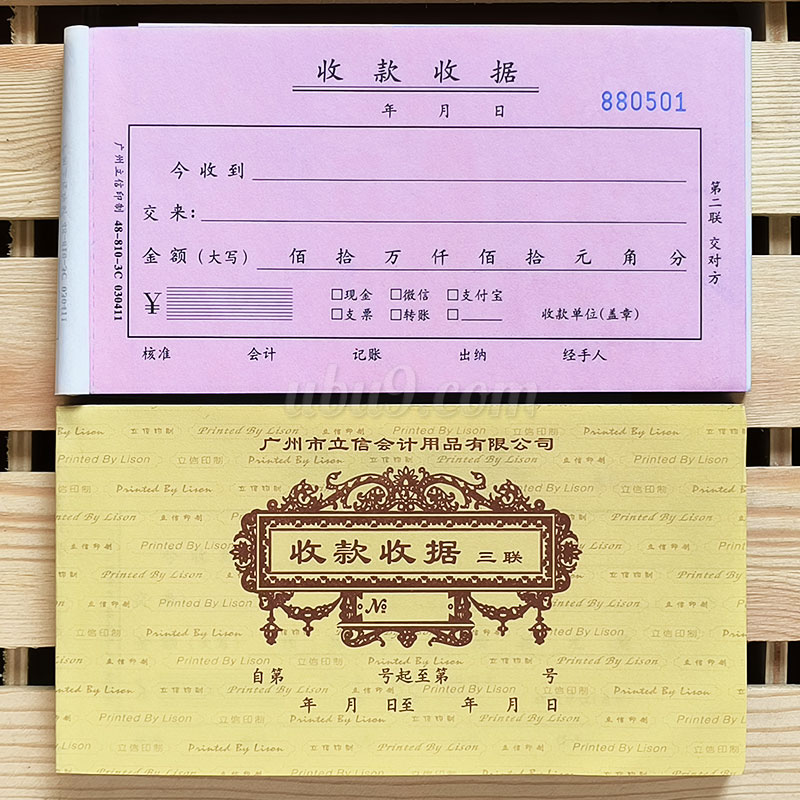 收款收据
年 月 日
880501
今收到
交来：
金额（大写） 佰 拾 万 仟 佰 拾 元 角 分
¥ □现金 □微信 □支付宝
□支票 □转账 □____ 收款单位(盖章)
核准 会计 记账 出纳 经手人
广州立信印制 48-810-3C 030411
第二联 交对方
ubu9.com
广州市立信会计用品有限公司
收款收据 三联
№
自第 号起至第 号
年 月 日至 年 月 日
Printed By Lison 立信印制